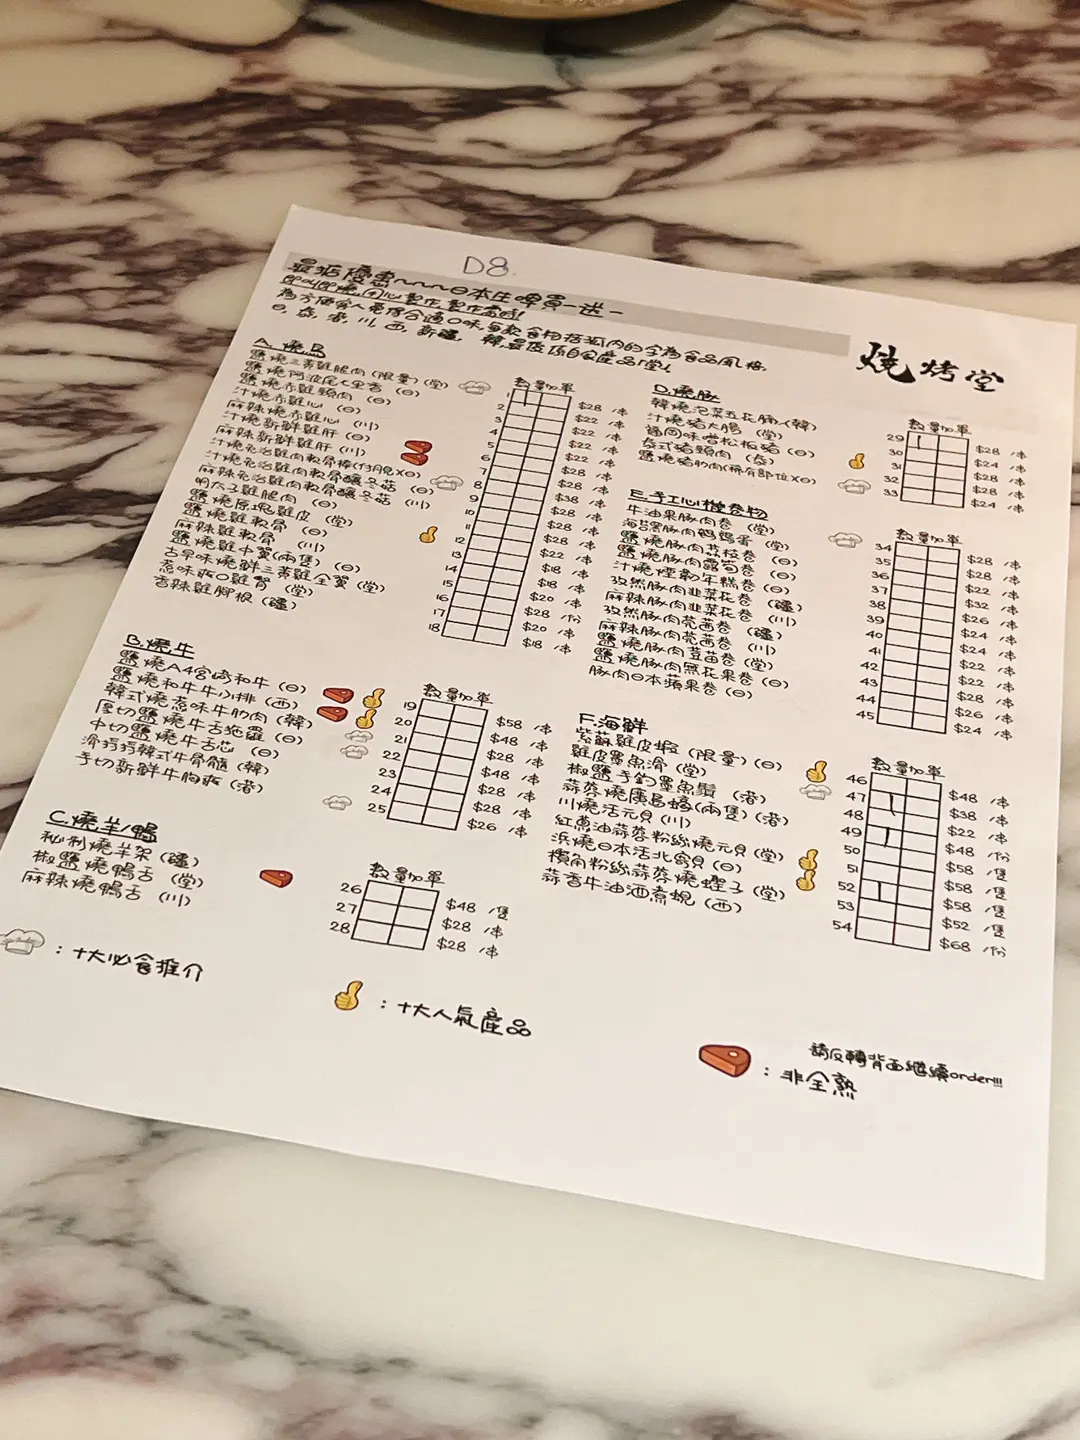 D8.
最抵優惠~~~~日本生啤買一送一
即叫即燒,用心製作,製作需時!
為方便客人覓得合適口味,每款食物括弧內的字為食品風格
日,泰,港,川,西,新疆,韓,最後項目全產品/堂!
燒烤堂
A.燒鳥
數量加單
鹽燒三黃雞腿肉(限量)(堂) 1 $28 /串
鹽燒阿波尾七里香(日) 2 $22 /串
汁燒赤雞頸肉(日) 3 $22 /串
汁燒赤雞心(日) 4 $22 /串
麻辣燒赤雞心(川) 5 $22 /串
汁燒新鮮雞肝(日) 6 $28 /串
麻辣新鮮雞肝(川) 7 $28 /串
汁燒免治雞肉軟骨棒(付月見)(日) 8 $38 /串
汁燒免治雞肉軟骨釀冬菇(日) 9 $28 /串
麻辣免治雞肉軟骨釀冬菇(川) 10 $28 /串
明太子雞腿肉(日) 11 $28 /串
鹽燒原塊雞皮(堂) 12 $22 /串
鹽燒雞軟骨(日) 13 $18 /串
麻辣雞軟骨(川) 14 $18 /串
鹽燒雞中翼(兩隻)(日) 15 $20 /串
古早味燒鮮三黃雞全翼(堂) 16 $28 /份
惹味爽口雞腎(堂) 17 $20 /串
香辣雞腳根(疆) 18 $18 /串
B.燒牛
數量加單
鹽燒A4宮崎和牛(日) 19 $58 /串
鹽燒和牛牛小排(西) 20 $48 /串
韓式燒惹味牛肋肉(韓) 21 $28 /串
厚切鹽燒牛舌拖羅(日) 22 $48 /串
中切鹽燒牛舌芯(日) 23 $28 /串
滑捋捋韓式牛骨髓(韓) 24 $28 /串
手切新鮮牛胸爽(港) 25 $26 /串
C.燒羊/鴨
數量加單
秘制燒羊架(疆) 26 $48 /隻
椒鹽燒鴨舌(堂) 27 $28 /串
麻辣燒鴨舌(川) 28 $28 /串
D.燒豚
數量加單
韓燒泡菜五花腩(韓) 29 $28 /串
汁燒豬大腸(堂) 30 $24 /串
西岡味噌松板豬(日) 31 $28 /串
泰式豬頸肉(泰) 32 $28 /串
鹽燒豬肋肉(稀有部位)(日) 33 $24 /串
E.手工心機卷物
數量加單
牛油果豚肉卷(堂) 34 $28 /串
海苔黑豚肉鵪鶉蛋(堂) 35 $28 /串
鹽燒豚肉荔枝卷(日) 36 $22 /串
鹽燒豚肉露筍卷(日) 37 $32 /串
汁燒煙韌年糕卷(日) 38 $26 /串
孜然豚肉韭菜花卷(疆) 39 $24 /串
麻辣豚肉韭菜花卷(川) 40 $24 /串
孜然豚肉芫茜卷(疆) 41 $22 /串
麻辣豚肉芫茜卷(川) 42 $22 /串
鹽燒豚肉荳苗卷(堂) 43 $28 /串
鹽燒豚肉無花果卷(日) 44 $26 /串
豚肉日本蘋果卷(日) 45 $24 /串
F.海鮮
數量加單
紫蘇雞皮蝦(限量)(日) 46 $48 /串
雞皮墨魚滑(堂) 47 $38 /串
椒鹽手釣墨魚鬚(港) 48 $22 /串
蒜蓉燒廣島蠔(兩隻)(港) 49 $48 /份
川燒活元貝(川) 50 $58 /隻
紅蔥油蒜蓉粉絲燒元貝(堂) 51 $58 /隻
浜燒日本活北寄貝(日) 52 $58 /隻
欖角粉絲蒜蓉燒蟶子(堂) 53 $52 /隻
蒜香牛油酒煮蜆(西) 54 $68 /份
:十大必食推介
:十大人氣產品
:非全熟
請反轉背面繼續order!!!